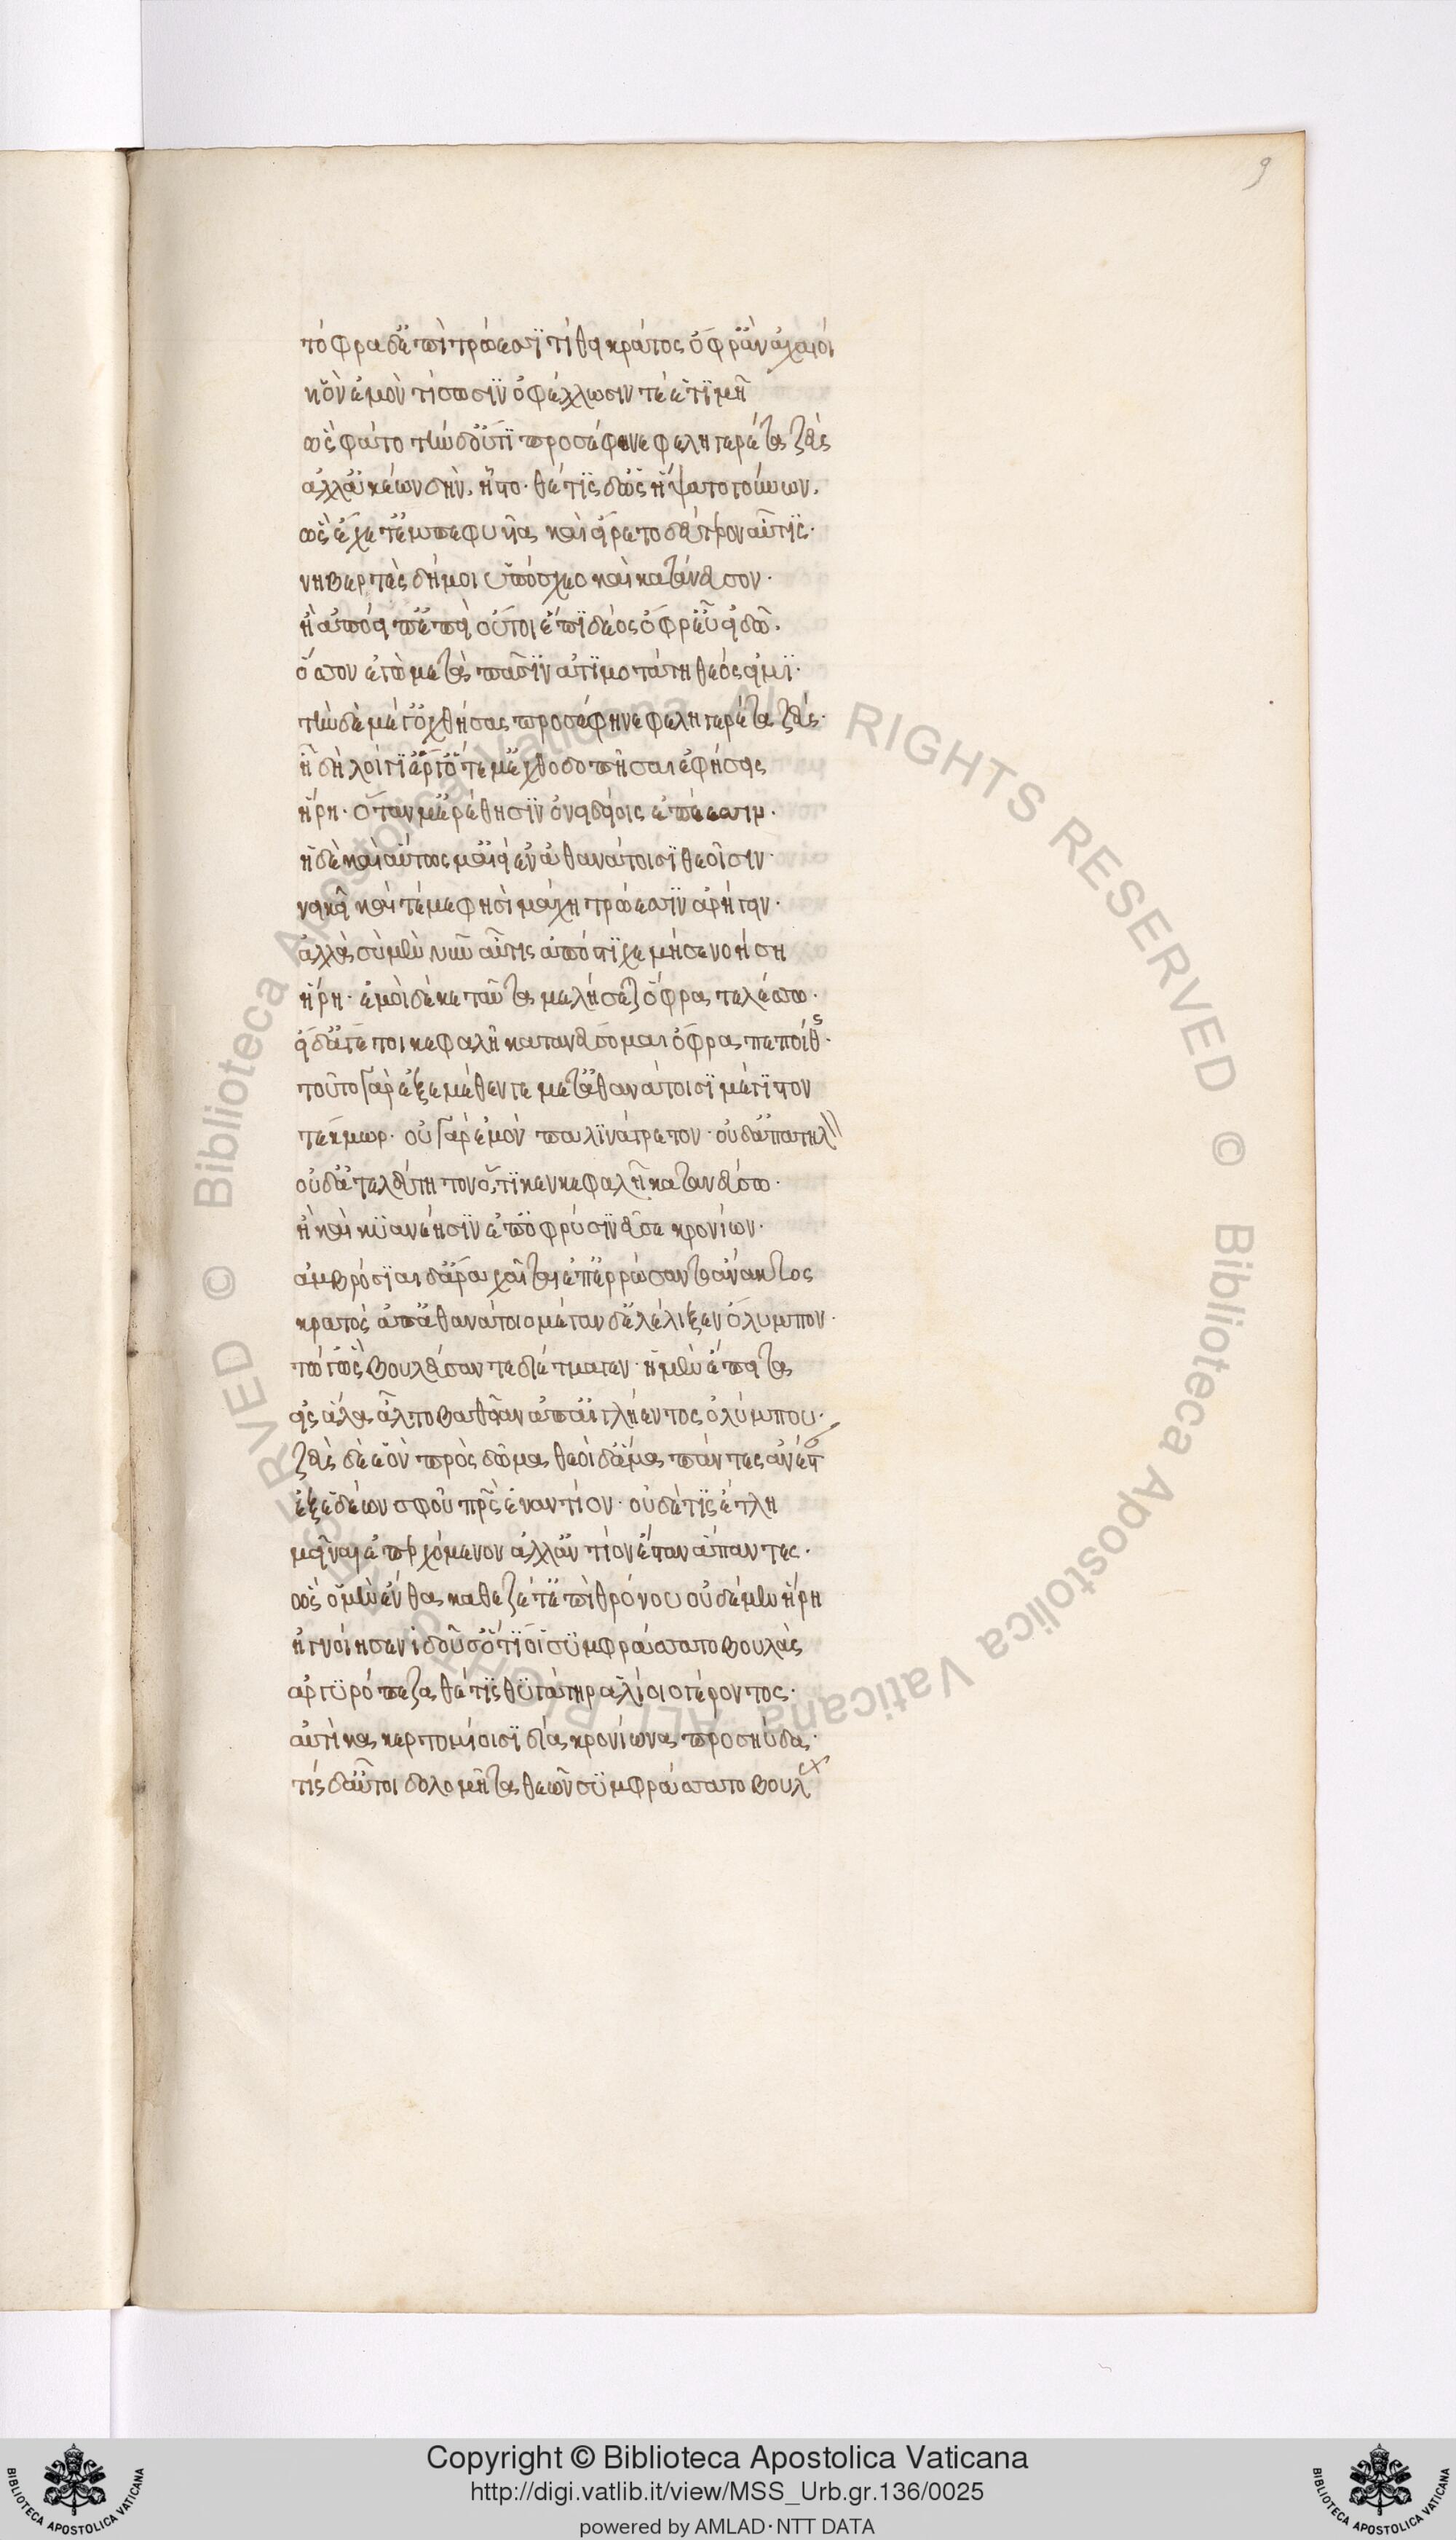 9
τόφρα δ' ἐπὶ τρώεσσϊ τίθει κράτος ὄφρ' ἂν ἀχαιοὶ
υἱὸν ἐμὸν τίσωσϊν ὀφέλλωσιν τέ ἑ τϊμῇ
ὣς φάτο τὴν δ' οὔτϊ προσέφη νεφεληγερέτα ζεὺς
ἀλλ' ἀκέων δὴν ἧστο· θέτϊς δ' ὡς ἥψατο γούνων.
ὣς ἔχετ' ἐμπεφυῖα καὶ εἴρετο δεύτερον αὖτϊς·
νημερτὲς δή μοι ὑπόσχεο καὶ κατάνευσον·
ἢ ἀπόειπ' ἐπεὶ οὔτοι ἔπϊ δέος ὄφρ' εὖ εἰδῶ.
ὅσσον ἐγὼ μετὰ πᾶσϊν ἀτϊμοτάτη θεός εἰμϊ·
τὴν δὲ μέγ' ὀχθήσας προσέφη νεφεληγερέτα ζεύς·
ἦ δὴ λοίγϊ' ἔργ' ὅτέ μ' ἐχθοδοπῆσαι ἐφήσεις
ἥρη· ὅταν μ' ἐρέθησϊν ὀνειδείοις ἐπέεσσιν·
ἡ δὲ καὶ αὔτως μ' αἰεὶ ἐν ἀθανάτοισϊ θεοῖσιν
νεικεῖ καί τέ με φησὶ μάχη τρώεσσϊν ἀρήγειν·
ἀλλὰ σὺ μὲν νῦν αὖτις ἀπόστϊχε μή σε νοήση
ἥρη· ἐμοὶ δέ κε ταῦτα μελήσεται ὄφρα τελέσσω·
εἰ δ' ἄγε τοι κεφαλῇ κατανεύσομαι ὄφρα πεποίθς·
τοῦτο γὰρ ἐξ ἐμέθεν γε μετ' ἀθανάτοισϊ μέγϊστον
τέκμωρ· οὐ γὰρ ἐμὸν παλϊνάγρετον· οὐδ' ἀπατηλ
οὐδ' ἀτελεύτητον ὅ,τϊ κεν κεφαλῇ κατανεύσω·
ἦ καὶ κϋανέησϊν ἐπ' ὀφρύσϊ νεῦσε κρονίων·
ἀμβρόσϊαι δ' ἄρα χαῖται ἐπερρώσαντο ἄνακτος
κρατὸς ἀπ' ἀθανάτοιο μέγαν δ' ἐλέλιξεν ὄλυμπον·
τώ γ' ὣς βουλεύσαντε διέτμαγεν· ἡ μὲν ἔπειτα
εἰς ἅλα ἆλτο βαθεῖαν ἀπ' αἰγλήεντος ὀλύμπου·
ζεὺς δὲ ἑὸν πρὸς δῶμα θεοὶ δ' ἅμα πάντες ἀνέστ
ἐξ ἑδέων σφοῦ πρς ἐναντίον· οὐδέ τϊς ἔτλη
μεῖναι ἐπερχόμενον ἀλλ' ἀντίον ἔσταν ἅπαντες·
ὣς ὁ μὲν ἔνθα καθέζετ' ἐπὶ θρόνου οὐδέ μϊν ἥρη
ἠγνοίησεν ἰδοῦσ' ὅτϊ οἱ σϋμφράσσατο βουλὰς
ἀργϋρόπεζα θέτϊς θϋγάτηρ ἁλίοιο γέροντος·
αὐτίκα κερτομίοισϊ δία κρονίωνα προσηύδα·
τίς δ' αὖ τοι δολομῆτα θεῶν σϋμφράσσατο βουλ
© Biblioteca Apostolica Vaticana ALL RIGHTS RESERVED
Copyright © Biblioteca Apostolica Vaticana
http://digi.vatlib.it/view/MSS_Urb.gr.136/0025
powered by AMLAD·NTT DATA
BIBLIOTECA APOSTOLICA VATICANA
BIBLIOTECA APOSTOLICA VATICANA